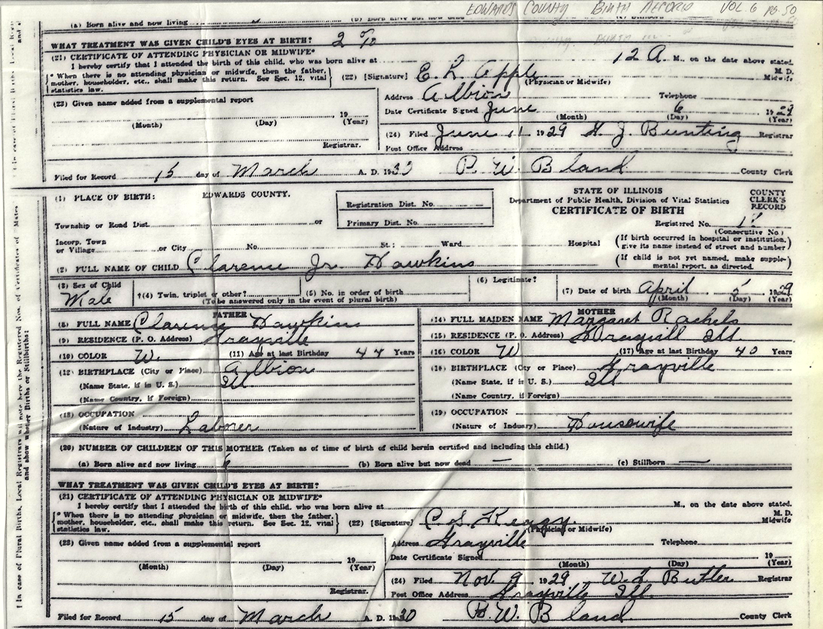 EDWARDS COUNTY BIRTH RECORD VOL 6 PG. 50
(a) Born alive and now living
WHAT TREATMENT WAS GIVEN CHILD'S EYES AT BIRTH? 2 %
(21) CERTIFICATE OF ATTENDING PHYSICIAN OR MIDWIFE*
I hereby certify that I attended the birth of this child, who was born alive at 12 A. M., on the date above stated.
* When there is no attending physician or midwife, then the father, mother, householder, etc., shall make this return. See Sec. 12, vital statistics law.
(22) [Signature] E. L. Apple M. D. Midwife
(Physician or Midwife)
Address Albion Telephone
(23) Given name added from a supplemental report 19
Date Certificate Signed June 6 1929
(Month) (Day) (Year)
(Month) (Day) (Year)
(24) Filed June 11 1929 G. J. Bunting Registrar
Registrar.
Post Office Address
Filed for Record 15 day of March A. D. 1930 P. W. Bland County Clerk
(1) PLACE OF BIRTH: EDWARDS COUNTY.
Registration Dist. No.
Primary Dist. No.
STATE OF ILLINOIS
Department of Public Health, Division of Vital Statistics
CERTIFICATE OF BIRTH
COUNTY CLERK'S RECORD
Township or Road Dist. or
Registered No.
(Consecutive No.)
Incorp. Town or Village or City No. St.; Ward Hospital
(If birth occurred in hospital or institution, give its name instead of street and number)
(2) FULL NAME OF CHILD Clarence Jr. Hawkins
(If child is not yet named, make supplemental report, as directed.
(3) Sex of Child Male
†(4) Twin, triplet or other? (5) No. in order of birth
(To be answered only in the event of plural birth)
(6) Legitimate?
(7) Date of birth April 5 1929
(Month) (Day) (Year)
FATHER
(8) FULL NAME Clarence Hawkins
(9) RESIDENCE (P. O. Address) Grayville
(10) COLOR W. (11) Age at last Birthday 44 Years
(12) BIRTHPLACE (City or Place) Albion
(Name State, if in U. S.) Ill
(Name Country, if Foreign)
(13) OCCUPATION
(Nature of Industry) Laborer
MOTHER
(14) FULL MAIDEN NAME Margaret Rachels
(15) RESIDENCE (P. O. Address) Grayvill Ill
(16) COLOR W (17) Age at last Birthday 40 Years
(18) BIRTHPLACE (City or Place) Grayville
(Name State, if in U. S.) Ill
(Name Country, if Foreign)
(19) OCCUPATION
(Nature of Industry) Housewife
(20) NUMBER OF CHILDREN OF THIS MOTHER (Taken as of time of birth of child herein certified and including this child.)
(a) Born alive and now living 6 (b) Born alive but now dead — (c) Stillborn —
WHAT TREATMENT WAS GIVEN CHILD'S EYES AT BIRTH?
(21) CERTIFICATE OF ATTENDING PHYSICIAN OR MIDWIFE*
I hereby certify that I attended the birth of this child, who was born alive at M., on the date above stated.
* When there is no attending physician or midwife, then the father, mother, householder, etc., shall make this return. See Sec. 12, vital statistics law.
(22) [Signature] C. S. M. D. Midwife
(Physician or Midwife)
Address Grayville Telephone
(23) Given name added from a supplemental report 19
Date Certificate Signed 19
(Month) (Day) (Year)
(Month) (Day) (Year)
(24) Filed Nov. 9 1929 W. L. Butler Registrar
Registrar.
Post Office Address Grayville Ill
Filed for Record 15 day of March A. D. 1930 P. W. Bland County Clerk
† In case of Plural Births, Local Registrars will note here the Registered Nos. of Certificates of Mates and show whether Births or Stillbirths: